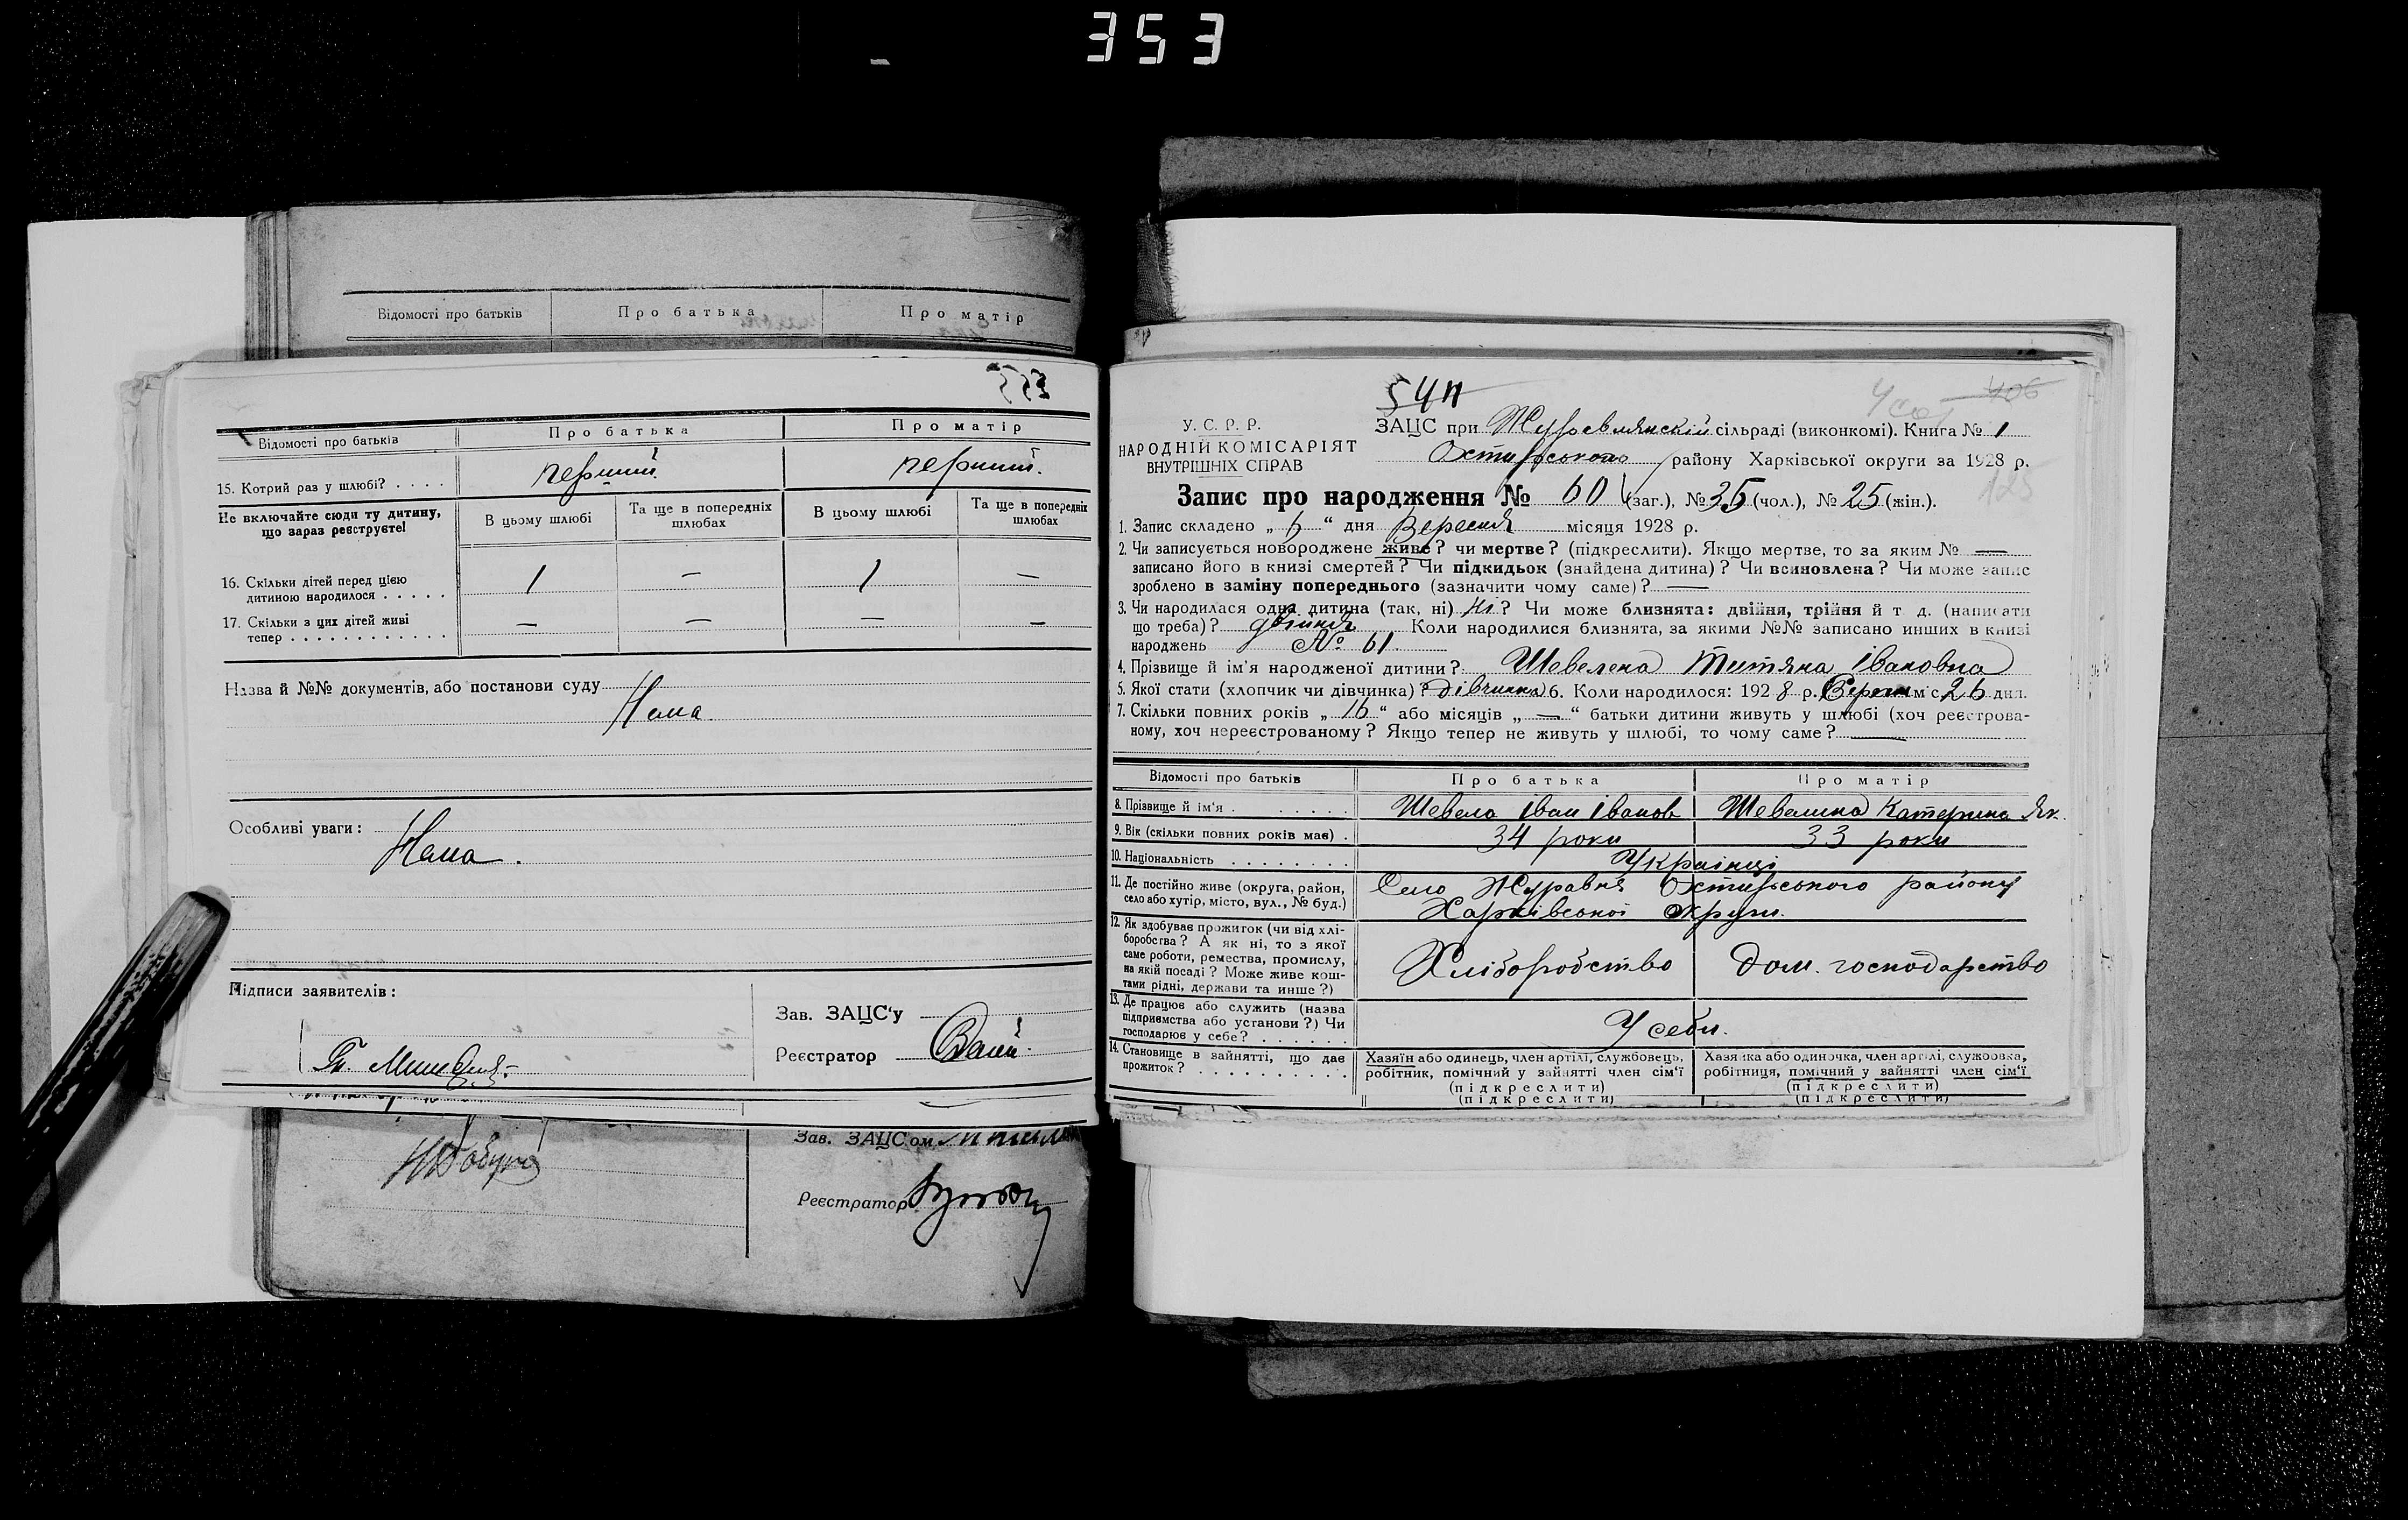 353
Відомості про батьків
Про батька
Про матір
Відомості про батьків
Про батька
Про матір
15. Котрий раз у шлюбі? . . . .
перший
перший.
Не включайте сюди ту дитину, що зараз реєструєте!
В цьому шлюбі
Та ще в попередніх шлюбах
В цьому шлюбі
Та ще в попередніх шлюбах
16. Скільки дітей перед цією
дитиною народилося . . . . .
1
—
1
—
17. Скільки з цих дітей живі
тепер . . . . . . . . . . . .
—
—
—
—
Назва й №№ документів, або постанови суду
Нема.
Особливі уваги:
Нема.
Підписи заявителів:
Зав. ЗАЦС‘у
Реєстратор
Зав. ЗАЦСом
Реєстратор
54
У. С. Р. Р.
НАРОДНІЙ КОМІСАРІЯТ
ВНУТРІШНІХ СПРАВ
406
ЗАЦС при Журавлянскій сільраді (виконкомі). Книга № 1
Охтирського району Харківської округи за 1928 р.
125
Запис про народження № 60 (заг.), № 35 (чол.), № 25 (жін.).
1. Запис складено „ 6 “ дня Вересня місяця 1928 р.
2. Чи записується новороджене живе? чи мертве? (підкреслити). Якщо мертве, то за яким № —
записано його в книзі смертей? Чи підкидьок (знайдена дитина)? Чи всиновлена? Чи може запис
зроблено в заміну попереднього (зазначити чому саме)? —
3. Чи народилася одна дитина (так, ні) Ні? Чи може близнята: двійня, трійня й т д. (написати
що треба)? двійня Коли народилися близнята, за якими №№ записано инших в книзі
народжень № 61.
4. Прізвище й ім'я народженої дитини? Шевелена Титяна Івановна
5. Якої стати (хлопчик чи дівчинка)? дівчинка 6. Коли народилося: 1928 р. міс 26 дня.
7. Скільки повних років „ 16 “ або місяців „ — “ батьки дитини живуть у шлюбі (хоч реєстрова-
ному, хоч нереєстрованому? Якщо тепер не живуть у шлюбі, то чому саме? —
Відомості про батьків
Про батька
Про матір
8. Прізвище й ім‘я . . . . . .
Шевела Іван Іванов
Катерина Як.
9. Вік (скільки повних років має) .
34 роки
33 роки
10. Національність . . . . . . . .
Українці
11. Де постійно живе (округа, район,
село або хутір, місто, вул., № буд.)
Село Журавне Охтирського району
Харківської округи.
12. Як здобуває прожиток (чи від хлі-
боробства? А як ні, то з якої
саме роботи, ремества, промислу,
на якій посаді? Може живе кош-
тами рідні, держави та инше?)
Хліборобство
дом. господарство
13. Де працює або служить (назва
підприємства або установи?) Чи
господарює у себе? . . . . . .
У себе.
14. Становище в зайнятті, що дає
прожиток? . . . . . . . . . .
Хазяїн або одинець, член артілі, службовець,
робітник, помічний у зайнятті член сім‘ї
(підкреслити)
Хазяїка або одиночка, член артілі, службовка,
робітниця, помічний у зайнятті член сім‘ї
(підкреслити)
(підкреслити)
(підкреслити)